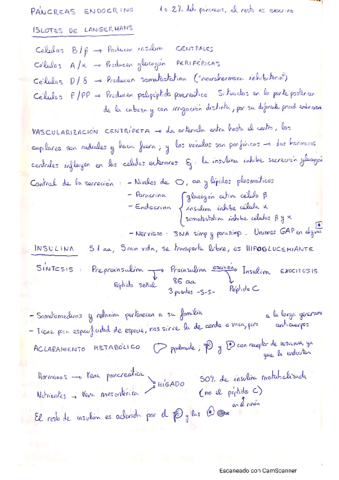 PÁNCREAS ENDOCRINO 1 o 2% del páncreas, el resto es exocrino
ISLOTES DE LANGERHANS
Células B/β → Producen insulina CENTRALES
Células A/α → Producen glucagón PERIFÉRICAS
Células D/δ → Producen somatostatina ("neurohormona inhibitoria")
Células F/PP → Producen polipéptido pancreático Situadas en la parte posterior
de la cabeza y con irrigación distinta, por su diferente prod. embrionaria
VASCULARIZACIÓN CENTRÍPETA → La arteriola entra hasta el centro, los
capilares son radiales y hacia fuera, y las vénulas son periféricas → las hormonas
centrales influyen en las células exteriores Ej: la insulina inhibe secreción glucagón
Control de la secreción: - Niveles de , aa y lípidos plasmáticos
- Paracrina glucagón activa célula β
- Endocrina insulina inhibe célula α
somatostatina inhibe células β y α
- Nervioso: SNA simp y parasimp. Uniones GAP en algunos
INSULINA 51 aa, 5 min vida, se transporta libre, es HIPOGLUCEMIANTE
SÍNTESIS: Preproinsulina → Proinsulina → Insulina EXOCITOSIS
Péptido señal 86 aa Péptido C
3 puentes -S-S-
- Somatomedinas y relaxina pertenecen a su familia
- Tiene poca especificidad de especie, nos sirve la de cerdo o vaca, pero a la larga generamos anticuerpos
ACLARAMIENTO METABÓLICO , y con receptor de insulina, ya
que la
Hormonas → Vena pancreática
HÍGADO
Nutrientes → Vena mesentérica
50% de insulina metabolizada
(no el péptido C)
en el riñón
El resto de insulina es aclarado por el y los
Escaneado con CamScanner